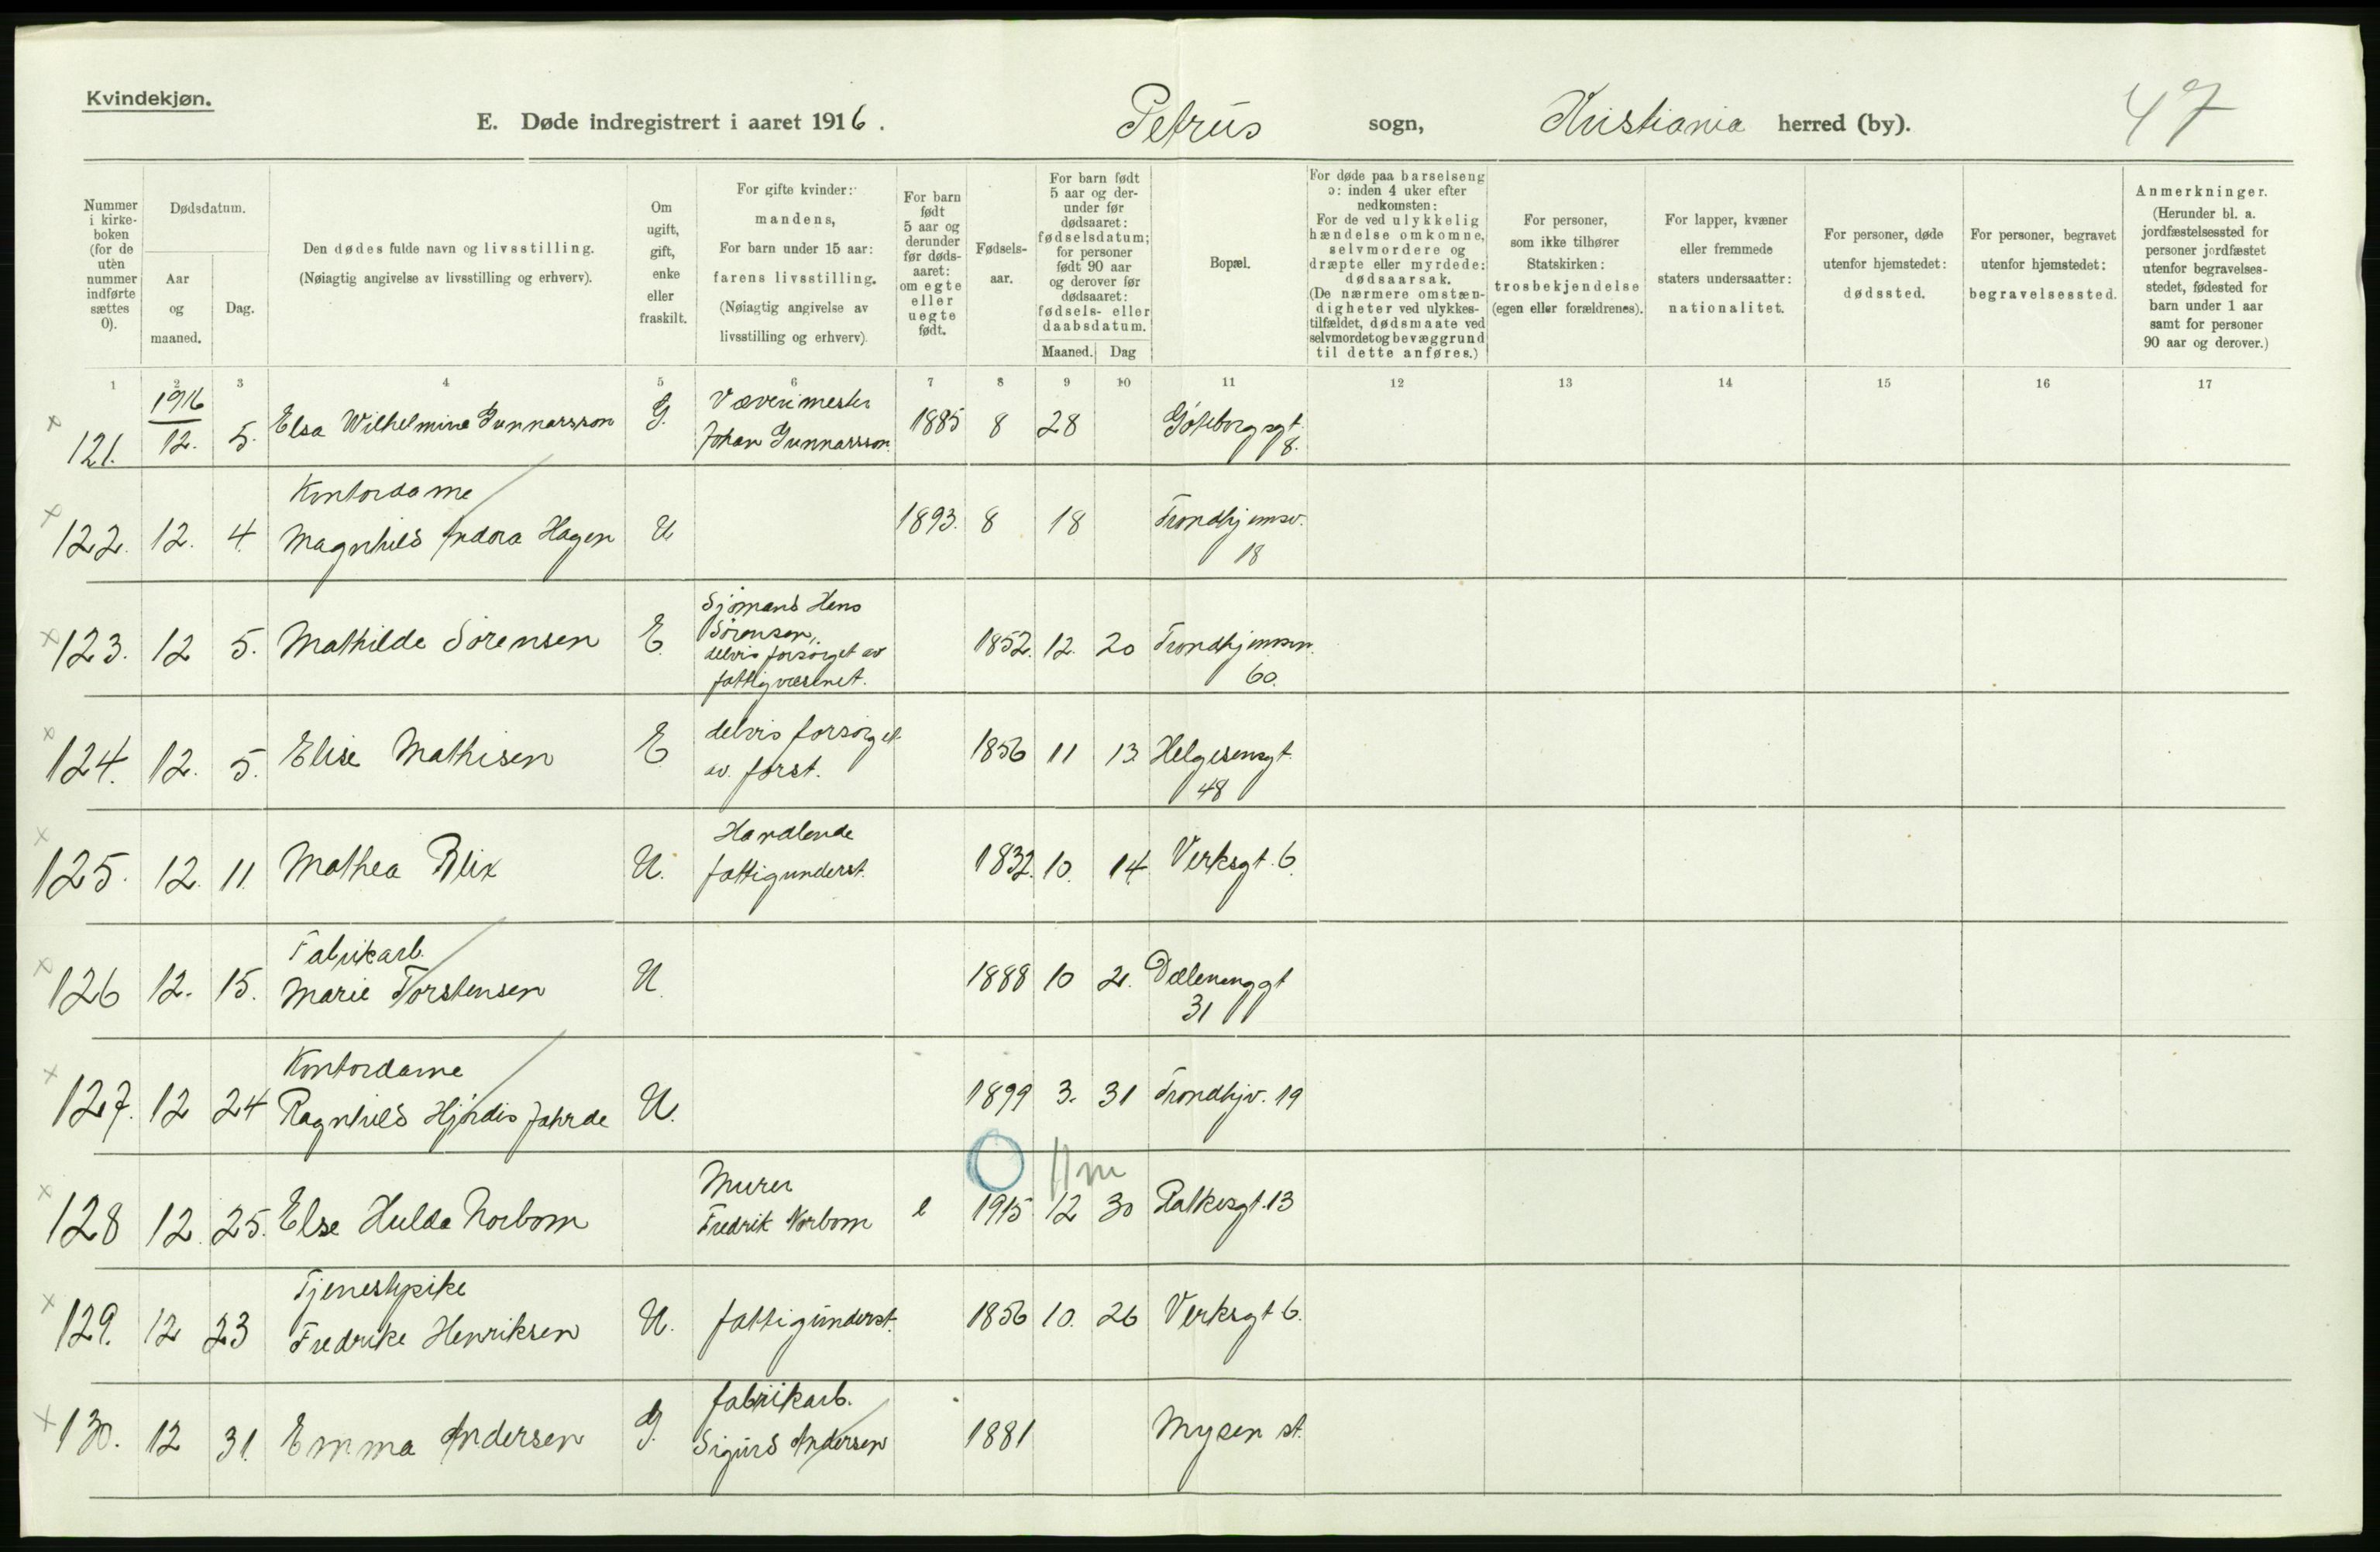 Kvindekjøn.
E. Døde indregistrert i aaret 1916. Petrus sogn, Kristiania herred (by). 47
Nummer i kirke- boken (for de uten nummer indførte sættes 0).
Dødsdatum.
Aar og maaned.
Dag.
Den dødes fulde navn og livsstilling.
(Nøiagtig angivelse av livsstilling og erhverv).
Om ugift, gift, enke eller fraskilt.
For gifte kvinder:
mandens,
For barn under 15 aar:
farens livsstilling.
(Nøiagtig angivelse av
livsstilling og erhverv)
For barn født 5 aar og derunder før døds- aaret: om egte eller uegte født.
Fødsels- aar.
For barn født 5 aar og der- under før dødsaaret: fødselsdatum; for personer født 90 aar og derover før dødsaaret: fødsels- eller daabsdatum.
Maaned. Dag
Bopæl.
For døde paa barselseng ɔ: inden 4 uker efter nedkomsten:
For de ved ulykkelig hændelse omkomne, selvmordere og dræpte eller myrdede: dødsaarsak.
(De nærmere omstæn- digheter ved ulykkes- tilfældet, dødsmaate ved selvmordet og bevæggrund til dette anføres.)
For personer, som ikke tilhører Statskirken: trosbekjendelse (egen eller forældrenes).
For lapper, kvæner eller fremmede staters undersaatter: nationalitet.
For personer, døde utenfor hjemstedet: dødssted.
For personer, begravet utenfor hjemstedet: begravelsessted.
Anmerkninger.
(Herunder bl. a. jordfæstelsessted for personer jordfæstet utenfor begravelses- stedet, fødested for barn under 1 aar samt for personer 90 aar og derover.)
1 2 3 4 5 6 7 8 9 10 11 12 13 14 15 16 17
1916 Væverimester
121. 12. 5. Elsa Wilhelmine Gunnarsson G. Johan Gunnarsson 1885 8 28 Göteborgsgt. 8.
Kontordame
122. 12. 4. Magnhild Indora Hagen U 1893. 8 18 Trondhjemsv. 18
Sjömand Hans Sörensen, delvis forsörget av fattigvæsenet.
123. 12 5. Mathilde Sörensen E. 1852. 12. 20 Trondhjemsvn. 60.
124. 12. 5. Elise Mathisen E delvis forsörget av. forst. 1856 11 13. Helgesensgt. 48
Handlende
125. 12. 11. Mathea Blix U. fattigunderst. 1832. 10. 14. Verksgt. 6.
Fabrikarb.
126 12. 15. Marie Torstensen U. 1888 10 21. Dælenenggt 31
Kontordame
127. 12 24 Ragnhild Hjördis Jahrde U. 1899 3. 31 Trondhjv. 19
O 11 m
Murer
128 12. 25. Else Hulda Norbom Fredrik Norbom e 1915 12 30 Falkesgt. 13
Tjenestpike
129. 12 23 Fredrike Henriksen U. fattigunderst. 1856 10. 26 Verksgt 6.
fabrikarb.
130. 12 31. Emma Andersen G. Sigurd Andersen 1881 Mysen st.